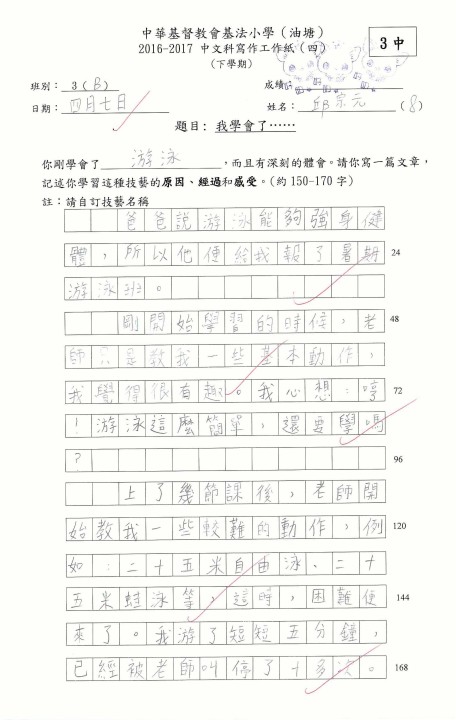 中華基督教會基法小學（油塘）
2016-2017 中文科寫作工作紙（四）
（下學期）
3中
班別：3（B）
成績：
日期：四月七日
姓名：邱宗元（8）
題目：我學會了……
你剛學會了游泳，而且有深刻的體會。請你寫一篇文章，
記述你學習這種技藝的原因、經過和感受。（約 150-170 字）
註：請自訂技藝名稱
爸爸說游泳能夠強身健
體，所以他便給我報了暑期 24
游泳班。
剛開始學習的時候，老 48
師只是教我一些基本動作，
我覺得很有趣。我心想：哼 72
！游泳這麼簡單，還要學嗎
？ 96
上了幾節課後，老師開
始教我一些較難的動作，例 120
如：二十五米自由泳、二十
五米蛙泳等，這時，困難便 144
來了。我游了短短五分鐘，
已經被老師叫停了十多次。 168